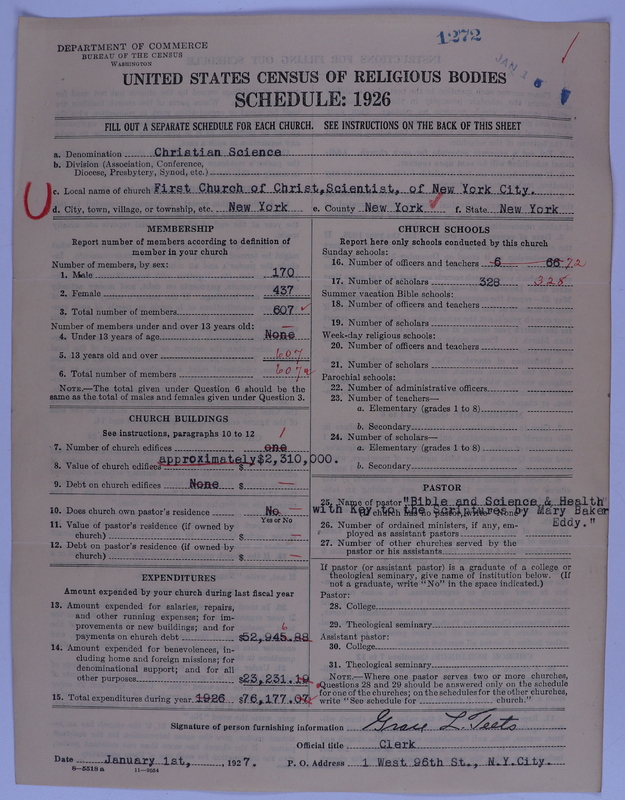 1272
JAN 1
DEPARTMENT OF COMMERCE
BUREAU OF THE CENSUS
WASHINGTON
UNITED STATES CENSUS OF RELIGIOUS BODIES
SCHEDULE: 1926
FILL OUT A SEPARATE SCHEDULE FOR EACH CHURCH. SEE INSTRUCTIONS ON THE BACK OF THIS SHEET
a. Denomination Christian Science
b. Division (Association, Conference,
Diocese, Presbytery, Synod, etc.)
c. Local name of church First Church of Christ,Scientist, of New York City.
d. City, town, village, or township, etc. New York e. County New York f. State New York
MEMBERSHIP
Report number of members according to definition of
member in your church
Number of members, by sex:
1. Male 170
2. Female 437
3. Total number of members 607
Number of members under and over 13 years old:
4. Under 13 years of age None
5. 13 years old and over 607
6. Total number of members 607
NOTE.—The total given under Question 6 should be the
same as the total of males and females given under Question 3.
CHURCH BUILDINGS
See instructions, paragraphs 10 to 12
7. Number of church edifices one 1
8. Value of church edifices approximately $2,310,000.
9. Debt on church edifices None $ —
10. Does church own pastor's residence No —
Yes or No
11. Value of pastor's residence (if owned by
church) $ —
12. Debt on pastor's residence (if owned by
church) $ —
EXPENDITURES
Amount expended by your church during last fiscal year
13. Amount expended for salaries, repairs,
and other running expenses; for im-
provements or new buildings; and for
payments on church debt $52,945.88 6
14. Amount expended for benevolences, in-
cluding home and foreign missions; for
denominational support; and for all
other purposes $23,231.19
15. Total expenditures during year 1926 $76,177.07
CHURCH SCHOOLS
Report here only schools conducted by this church
Sunday schools:
16. Number of officers and teachers 6 66 72
17. Number of scholars 328 328
Summer vacation Bible schools:
18. Number of officers and teachers
19. Number of scholars
Week-day religious schools:
20. Number of officers and teachers
21. Number of scholars
Parochial schools:
22. Number of administrative officers
23. Number of teachers—
a. Elementary (grades 1 to 8)
b. Secondary
24. Number of scholars—
a. Elementary (grades 1 to 8)
b. Secondary
PASTOR
25. Name of pastor "Bible and Science & Health
with Key to the Scriptures by Mary Baker
Eddy."
26. Number of ordained ministers, if any, em-
ployed as assistant pastors
27. Number of other churches served by the
pastor or his assistants
If pastor (or assistant pastor) is a graduate of a college or
theological seminary, give name of institution below. (If
not a graduate, write "No" in the space indicated.)
Pastor:
28. College
29. Theological seminary
Assistant pastor:
30. College
31. Theological seminary
NOTE.—Where one pastor serves two or more churches,
Questions 28 and 29 should be answered only on the schedule
for one of the churches; on the schedules for the other churches,
write "See schedule for church."
Signature of person furnishing information Grace L. Teets
Official title Clerk
Date January 1st, , 1927. P. O. Address 1 West 96th St., N.Y.City.
6—5518a 11—9054